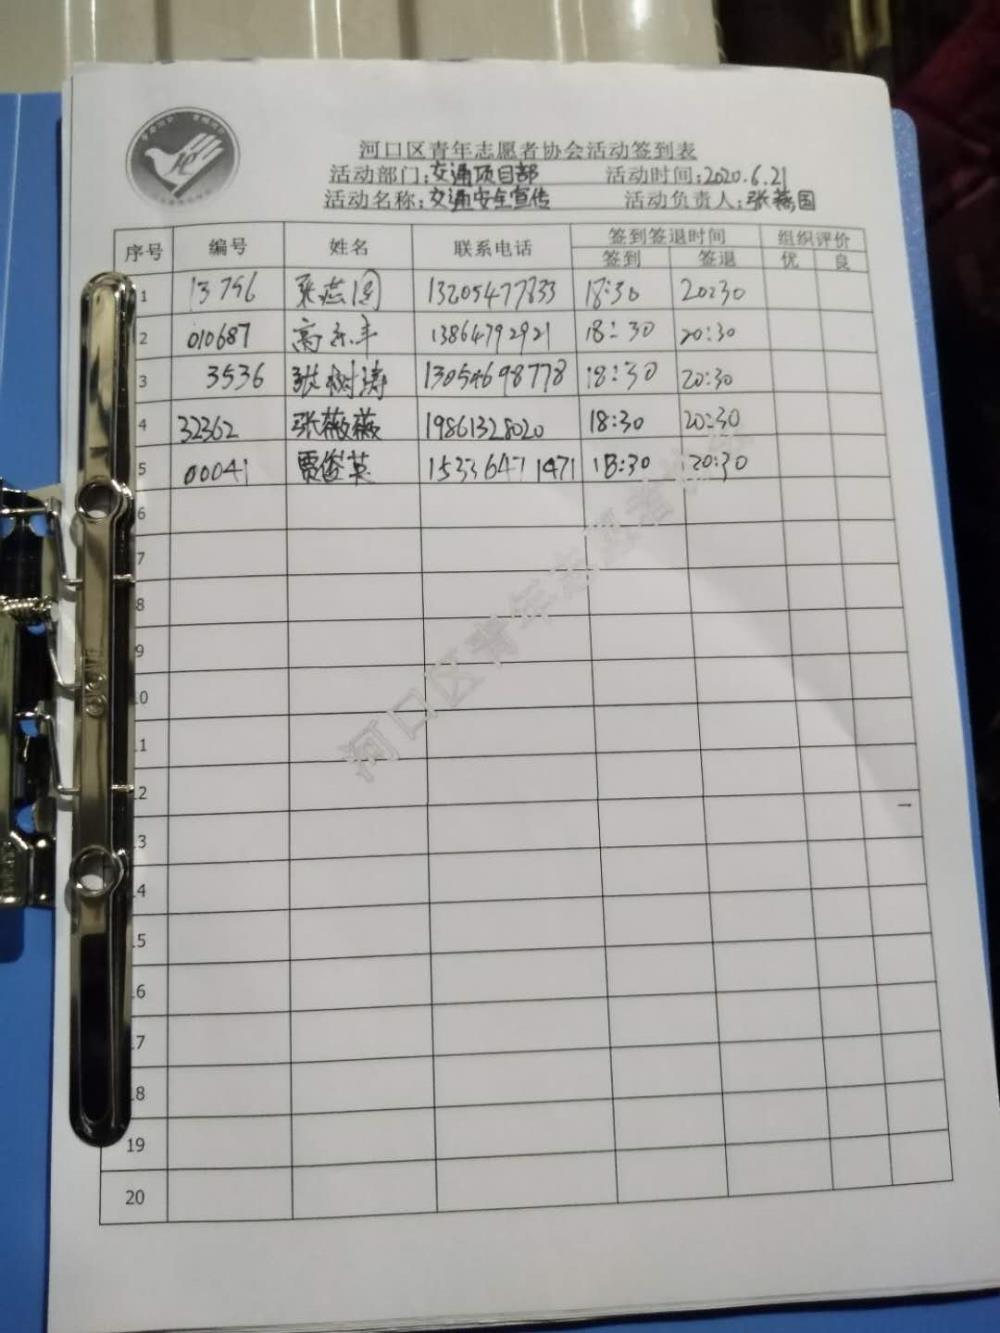 河口区青年志愿者协会活动签到表
活动部门:交通项目部 活动时间:2020.6.21
活动名称:交通安全宣传 活动负责人:张燕国
序号 编号 姓名 联系电话 签到签退时间 组织评价
签到 签退 优 良
1 13756 张燕国 18:30 20:30
2 010687 高永丰 13864792921 18:30 20:30
3 3536 张树涛 13054698778 18:30 20:30
4 32362 张薇薇 19861328020 18:30 20:30
5 00041 贾俊英 15336471471 18:30 20:30
6
7
8
9
10
11
12
13
14
15
16
17
18
19
20
河口区青年志愿者协会